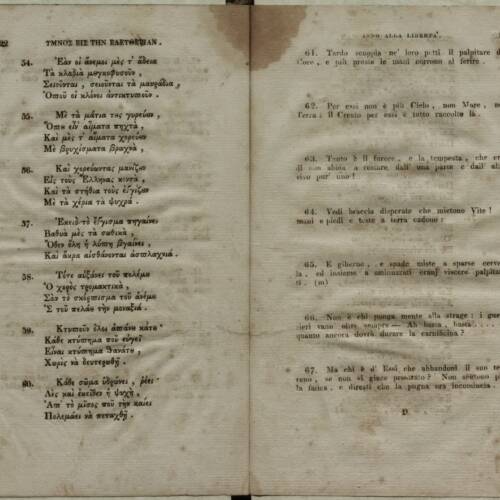 22 ΥΜΝΟΣ ΕΙΣ ΤΗΝ ΕΛΕΥΘΕΡΙΑΝ.
54. Ἐὰν οἱ ἄνεμοι μὲς τ' ἄδεια
Τὰ κλαδιὰ
Σειοῦνται, σειοῦνται τὰ μαυράδια,
Ὁποῦ οἱ κλόνοι ἀντικτυποῦν.
55. Μὲ τὰ μάτια τους γυρεύουν
Ὅπου εἶν' αἵματα πηχτὰ,
Καὶ μὲς τ' αἵματα χορεύουν
Μὲ βρυχίσματα βραχνὰ,
56. Καὶ χορεύοντας μανίζουν
Εἰς τοὺς Ἕλληνας κοντὰ,
Καὶ τὰ στήθια τοὺς ἐγγίζουν
Μὲ τὰ χέρια τὰ ψυχρά.
57. Ἐκειὸ τὸ ἔγγισμα πηγαίνει
Βαθυὰ μὲς τὰ σωθικὰ,
Ὅθεν ὅλη ἡ λύπη βγαίνει,
Καὶ ἄκρα αἰσθάνονται ἀσπλαχνιά.
58. Τότε αὐξαίνει τοῦ πολέμου
Ὁ χορὸς τρομακτικὰ,
Σὰν τὸ σκόρπισμα τοῦ ἀνέμου
Σ τοῦ πελάου τὴν μοναξιά.
59. Κτυποῦν ὅλοι ἀπάνου κάτου
Κάθε κτύπημα ποῦ εὐγεῖ
Εἶναι κτύπημα θανάτου,
Χωρὶς νὰ δευτερωθῇ.
60. Κάθε σῶμα ἱδρώνει, ῥέει
Λὲς καὶ ἐκεῖθεν ἡ ψυχὴ,
Ἀπ' τὸ μῖσος ποῦ τὴν καίει
Πολεμάει νὰ πεταχθῇ.
INNO ALLA LIBERTA'.
61. Tardo scoppia ne' loro petti il palpitare d
Core, e più preste le mani corrono al ferire.
62. Per essi non è più Cielo, non Mare, no
Terra: il Creato per essi è tutto raccolto là.
63. Tanto è il furore, e la tempesta, che
di non abbia a restare dall' una parte e dall' al
vivo pur uno!
64. Vedi braccia disperate che mietono Vite!
mani e piedi e teste a terra cadono:
65. E giberne, e spade miste a sparse cerve
la, ed insieme a ammozzati cranj viscere palpitan
ti. (m)
66. Non è chi ponga mente alla strage: i gue
rieri vano oltre sempre — Ah basta, basta!...
quanto ancora dovrà durare la carnificina?
67. Ma chi è d' Essi che abbandoni il suo ter
reno, se non vi giace prostrato? Non sentono p
la fatica, e diresti che la pugna ora incomincia.
D.